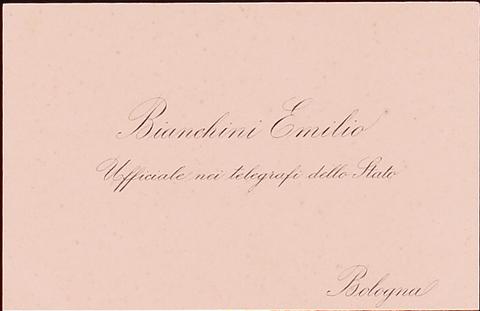 Bianchini Emilio
Ufficiale nei telegrafi dello Stato
Bologna